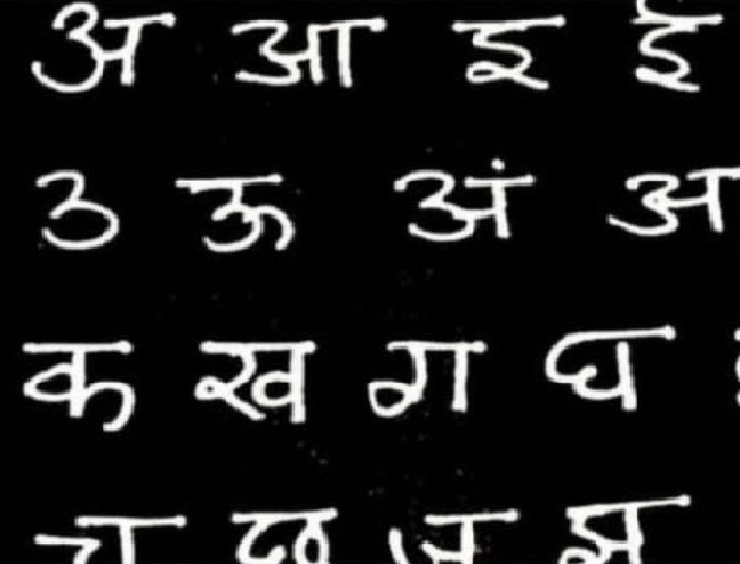 अ आ इ ई
उ ऊ अं अ
क ख ग घ
च छ ज झ